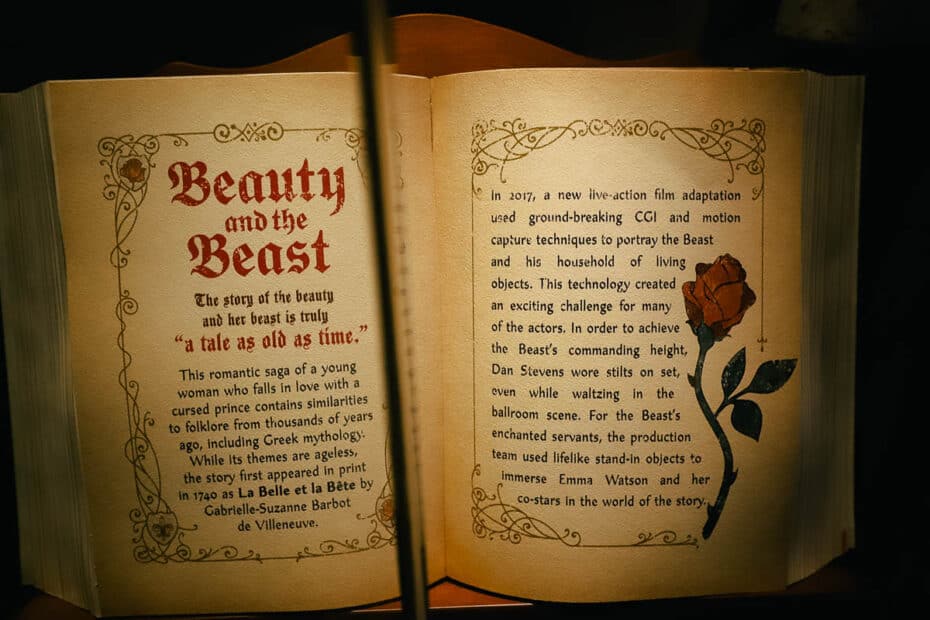 Beauty
and the
Beast
The story of the beauty
and her beast is truly
“a tale as old as time.”
This romantic saga of a young
woman who falls in love with a
cursed prince contains similarities
to folklore from thousands of years
ago, including Greek mythology.
While its themes are ageless,
the story first appeared in print
in 1740 as La Belle et la Bête by
Gabrielle-Suzanne Barbot
de Villeneuve.
In 2017, a new live-action film adaptation
used ground-breaking CGI and motion
capture techniques to portray the Beast
and his household of living
objects. This technology created
an exciting challenge for many
of the actors. In order to achieve
the Beast’s commanding height,
Dan Stevens wore stilts on set,
even while waltzing in the
ballroom scene. For the Beast’s
enchanted servants, the production
team used lifelike stand-in objects to
immerse Emma Watson and her
co-stars in the world of the story.